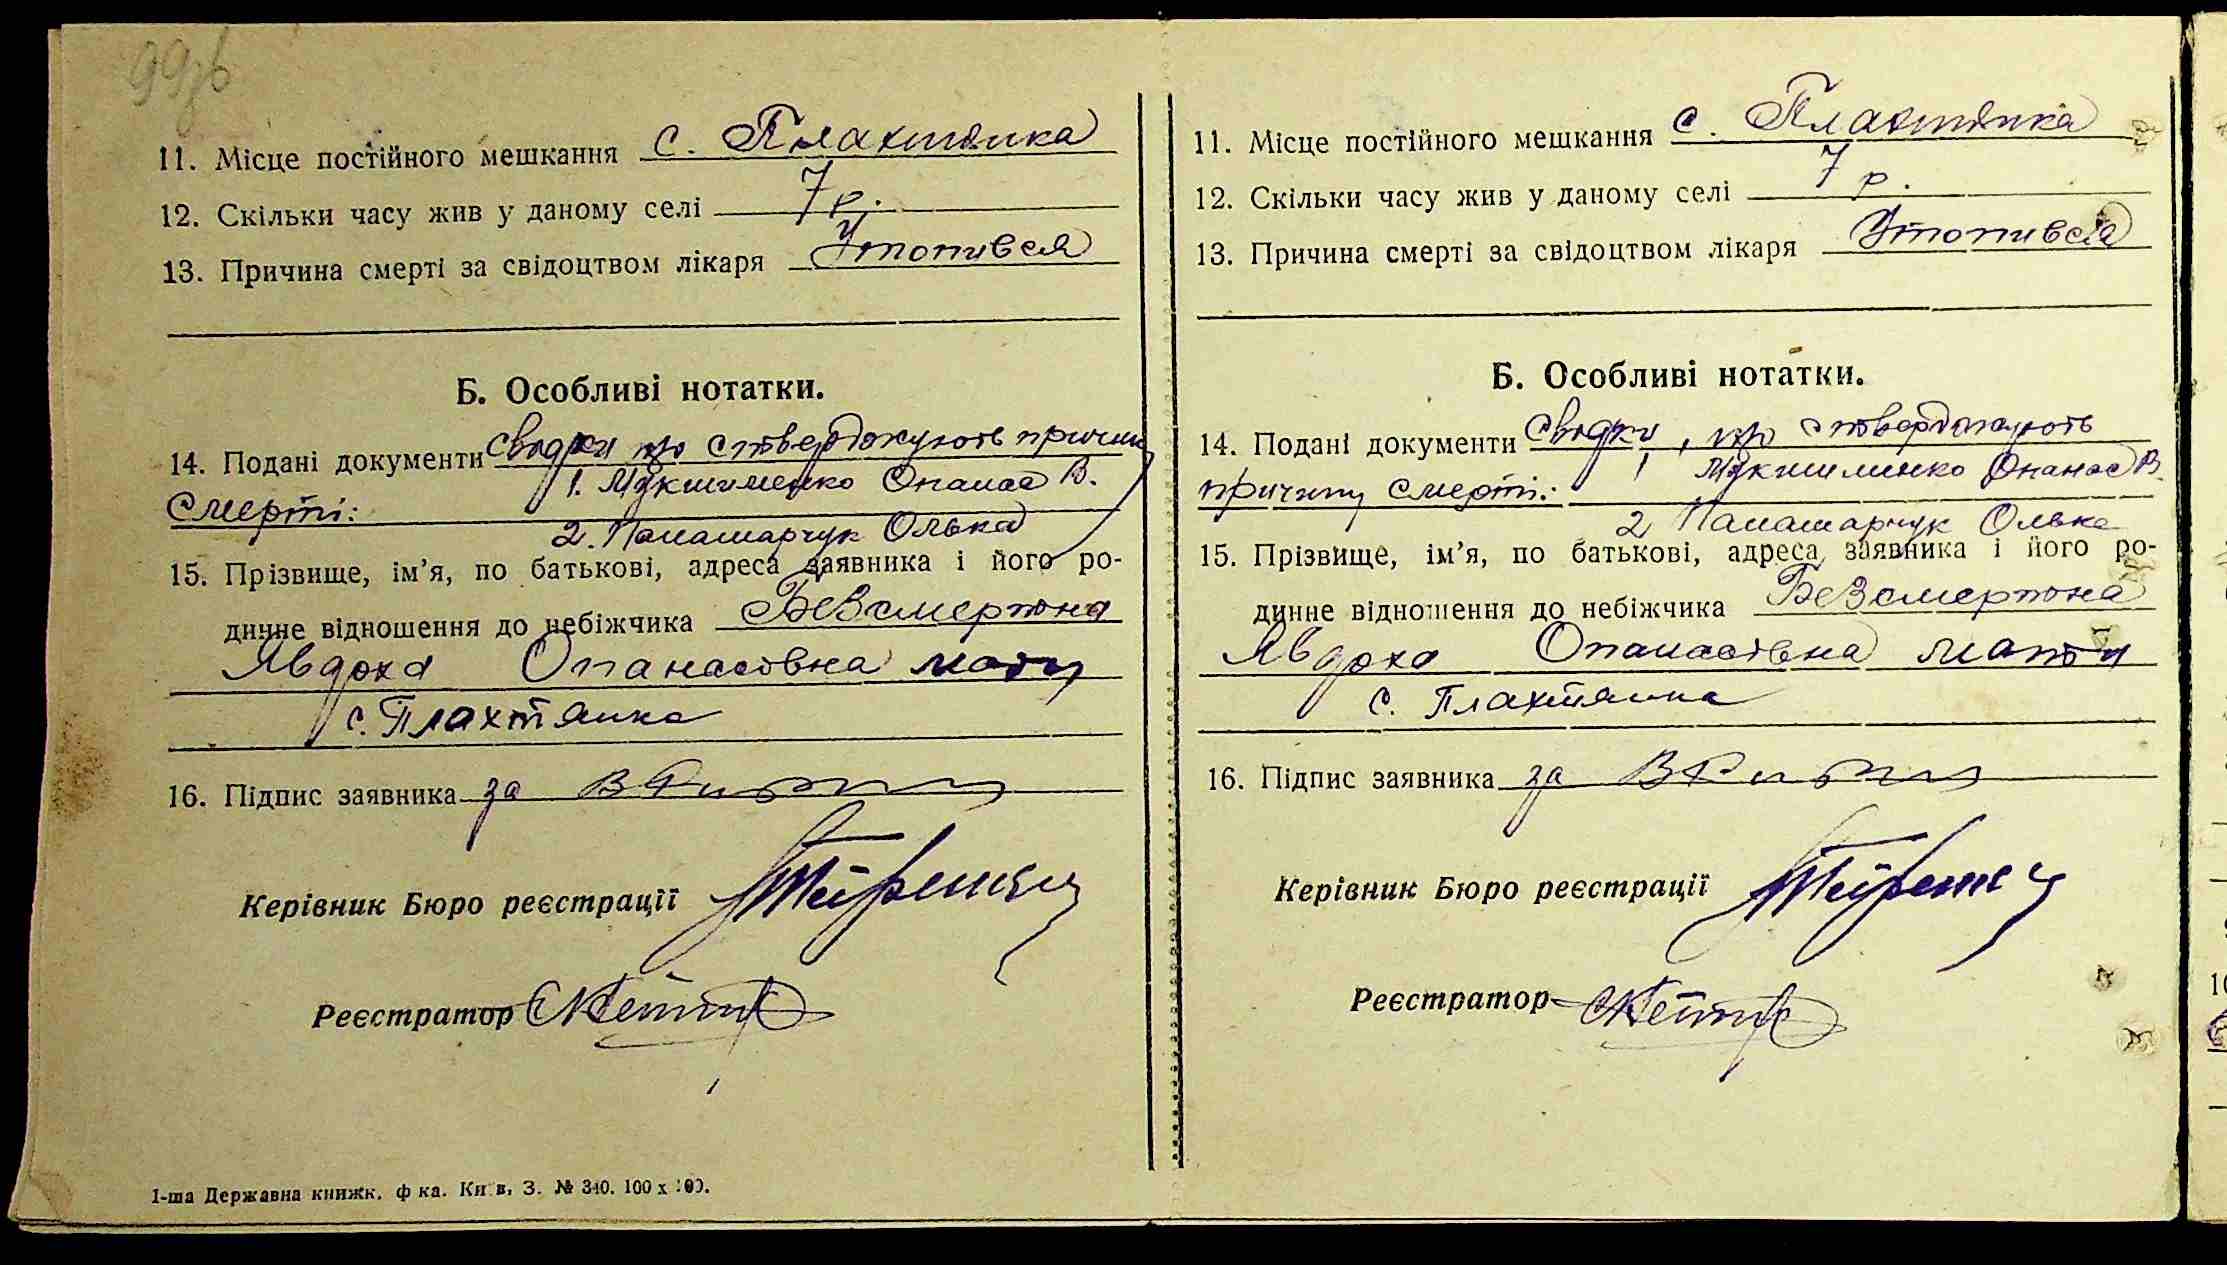 99зв
11. Місце постійного мешкання с. Плахтянка
12. Скільки часу жив у даному селі 7 р.
13. Причина смерті за свідоцтвом лікаря Утопився
Б. Особливі нотатки.
14. Подані документи свідки що стверджують причину
смерті: 1. Макшименко Опанас В.
2. Паламарчук Олька
15. Прізвище, ім'я, по батькові, адреса заявника і його ро-
динне відношення до небіжчика Безсмертона
Явдоха Опанасовна мати
с. Плахтянка
16. Підпис заявника за
Керівник Бюро реєстрації
Реєстратор
1-ша Державна книжк. ф ка. Київ, З. № 340. 100 х 100.
11. Місце постійного мешкання с. Плахтянка
12. Скільки часу жив у даному селі 7 р.
13. Причина смерті за свідоцтвом лікаря Утопився
Б. Особливі нотатки.
14. Подані документи свідки, що стверджують
причину смерті: 1 Макшименко Опанас В.
2 Паламарчук Олька
15. Прізвище, ім'я, по батькові, адреса заявника і його ро-
динне відношення до небіжчика Безсмертона
Явдоха Опанасовна мати
с. Плахтянка
16. Підпис заявника за
Керівник Бюро реєстрації
Реєстратор